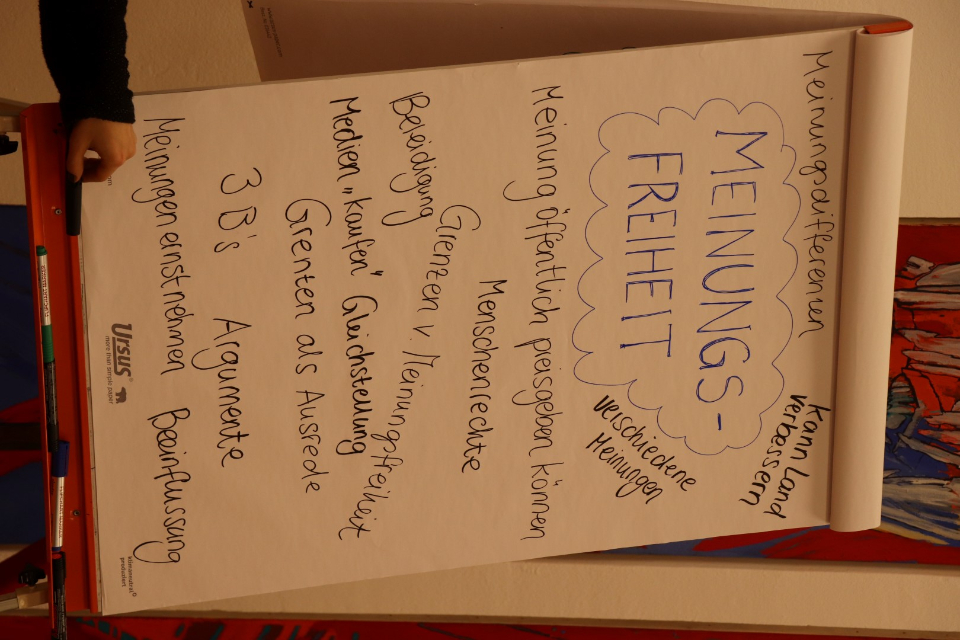 Meinungsdifferenzen
Kann Land
verbesssern
MEINUNGS-
FREIHEIT
verschiedene
Meinungen
Meinung öffentlich preisgeben können
Menschenrechte
Grenzen v. Meinungsfreiheit
Beleidigung
Medien „kaufen" Gleichstellung
Grenzen als Ausrede
3 B's Argumente
Meinungen ernst nehmen Beeinflussung
Ursus®
more than simple paper
klimaneutral
produziert